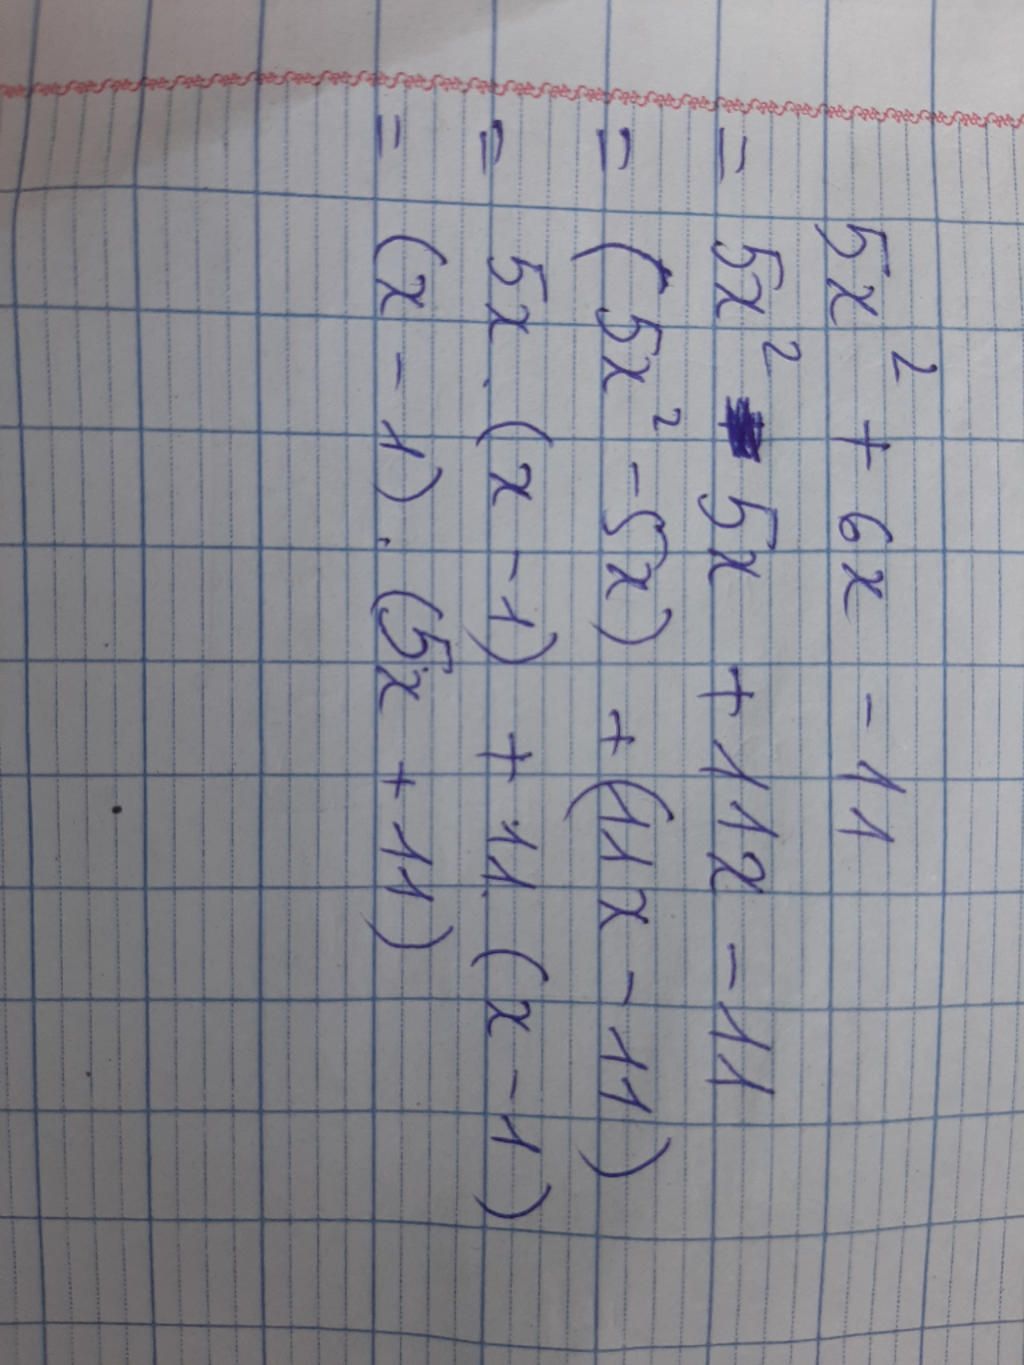 5x² + 6x - 11
= 5x² 5x + 11x - 11
= (5x² - 5x) + (11x - 11)
= 5x . (x - 1) + 11. (x - 1)
= (x - 1) . (5x + 11)